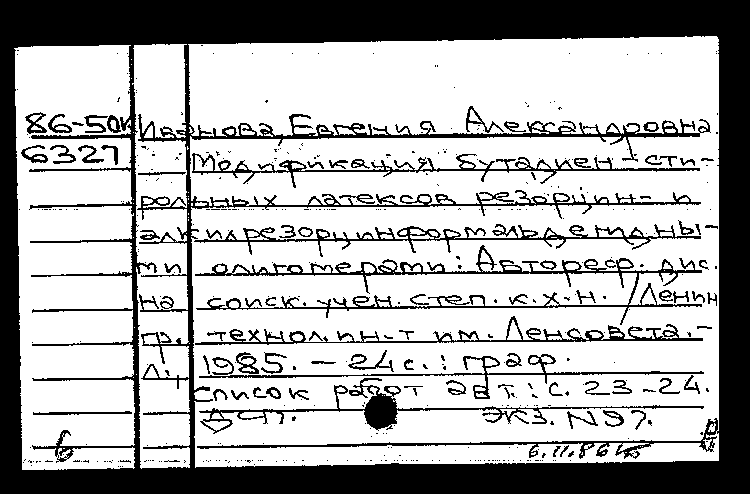 86-50к Иванова, Евгения Александровна
6327 Модификация бутадиен-сти-
рольных латексов резорцин- и
алкилрезорцинформальдегидны-
ми олигомерами: Автореф. дис.
на соиск. учен. степ. к.х.н. / Ленин
гр. технол. ин-т им. Ленсовета. -
Л., 1985. - 24 с. : граф.
Список работ авт.: с. 23-24.
ДСП. ЭКЗ. N97.
б 6.11.86